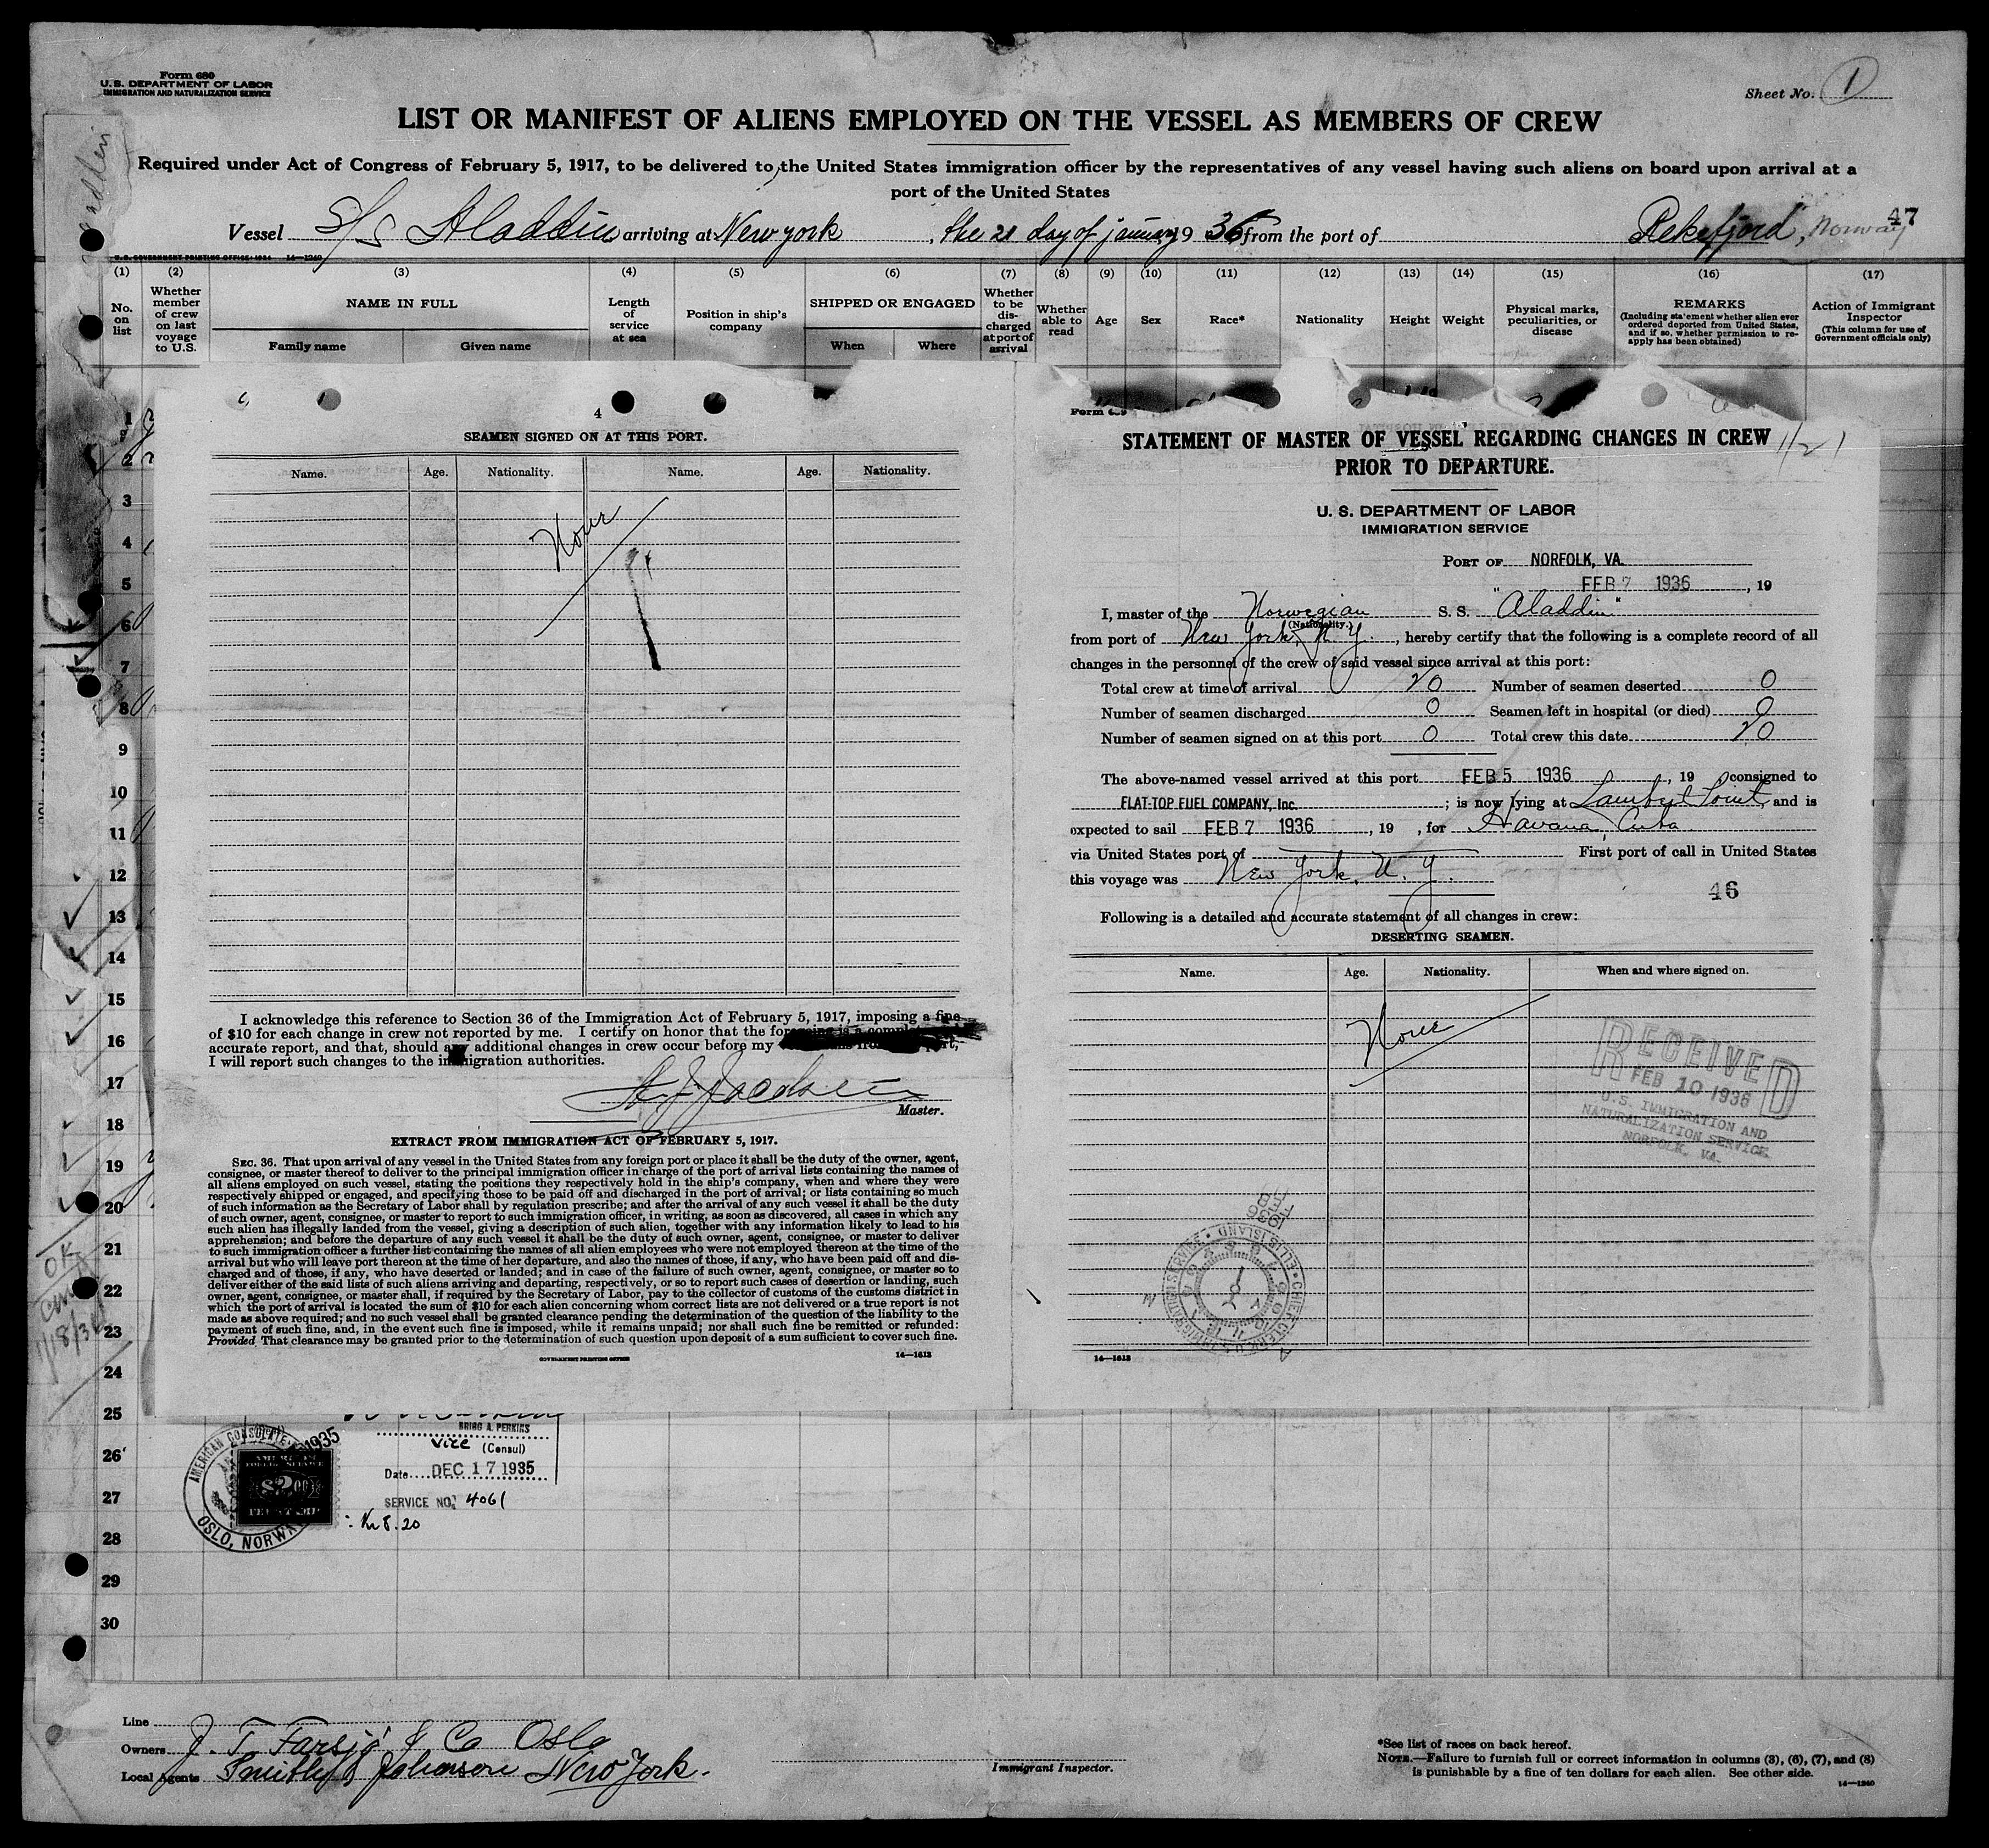 Form 680
U. S. DEPARTMENT OF LABOR
IMMIGRATION AND NATURALIZATION SERVICE
Sheet No. 1
LIST OR MANIFEST OF ALIENS EMPLOYED ON THE VESSEL AS MEMBERS OF CREW
Required under Act of Congress of February 5, 1917, to be delivered to the United States immigration officer by the representatives of any vessel having such aliens on board upon arrival at a
port of the United States
Vessel S/S Aladdin arriving at New york, the 21 day of january 1936 from the port of Rekefjord, Norway
47
U. S. GOVERNMENT PRINTING OFFICE: 1934 14—1240
(1) (2) (3) (4) (5) (6) (7) (8) (9) (10) (11) (12) (13) (14) (15) (16) (17)
No. on list
Whether member of crew on last voyage to U.S.
NAME IN FULL
Family name
Given name
Length of service at sea
Position in ship's company
SHIPPED OR ENGAGED
When
Where
Whether to be discharged at port of arrival
Whether able to read
Age
Sex
Race*
Nationality
Height
Weight
Physical marks, peculiarities, or disease
REMARKS
(Including statement whether alien ever ordered deported from United States, and if so, whether permission to reapply has been obtained)
Action of Immigrant Inspector
(This column for use of Government officials only)
1
2
3
4
5
6
7
8
9
10
11
12
13
14
15
16
17
18
19
20
21
22
23
24
25
26
27
28
29
30
OK
4
SEAMEN SIGNED ON AT THIS PORT.
Name. Age. Nationality. Name. Age. Nationality.
None
I acknowledge this reference to Section 36 of the Immigration Act of February 5, 1917, imposing a fine
of $10 for each change in crew not reported by me. I certify on honor that the foregoing is a complete and
accurate report, and that, should any additional changes in crew occur before my
I will report such changes to the immigration authorities.
Jacobsen
Master.
EXTRACT FROM IMMIGRATION ACT OF FEBRUARY 5, 1917.
SEC. 36. That upon arrival of any vessel in the United States from any foreign port or place it shall be the duty of the owner, agent,
consignee, or master thereof to deliver to the principal immigration officer in charge of the port of arrival lists containing the names of
all aliens employed on such vessel, stating the positions they respectively hold in the ship's company, when and where they were
respectively shipped or engaged, and specifying those to be paid off and discharged in the port of arrival; or lists containing so much
of such information as the Secretary of Labor shall by regulation prescribe; and after the arrival of any such vessel it shall be the duty
of such owner, agent, consignee, or master to report to such immigration officer, in writing, as soon as discovered, all cases in which any
such alien has illegally landed from the vessel, giving a description of such alien, together with any information likely to lead to his
apprehension; and before the departure of any such vessel it shall be the duty of such owner, agent, consignee, or master to deliver
to such immigration officer a further list containing the names of all alien employees who were not employed thereon at the time of the
arrival but who will leave port thereon at the time of her departure, and also the names of those, if any, who have been paid off and dis-
charged and of those, if any, who have deserted or landed; and in case of the failure of such owner, agent, consignee, or master so to
deliver either of the said lists of such aliens arriving and departing, respectively, or so to report such cases of desertion or landing, such
owner, agent, consignee, or master shall, if required by the Secretary of Labor, pay to the collector of customs of the customs district in
which the port of arrival is located the sum of $10 for each alien concerning whom correct lists are not delivered or a true report is not
made as above required; and no such vessel shall be granted clearance pending the determination of the question of the liability to the
payment of such fine, and, in the event such fine is imposed, while it remains unpaid; nor shall such fine be remitted or refunded:
Provided, That clearance may be granted prior to the determination of such question upon deposit of a sum sufficient to cover such fine.
GOVERNMENT PRINTING OFFICE 14—1613
Form 689
STATEMENT OF MASTER OF VESSEL REGARDING CHANGES IN CREW
PRIOR TO DEPARTURE.
1/21
U. S. DEPARTMENT OF LABOR
IMMIGRATION SERVICE
PORT OF NORFOLK, VA.
FEB 7 1936, 19
I, master of the Norwegian S. S. "Aladdin"
(Nationality.)
from port of New York, N. Y., hereby certify that the following is a complete record of all
changes in the personnel of the crew of said vessel since arrival at this port:
Total crew at time of arrival 20 Number of seamen deserted 0
Number of seamen discharged 0 Seamen left in hospital (or died) 0
Number of seamen signed on at this port 0 Total crew this date 20
The above-named vessel arrived at this port FEB 5 1936, 19 consigned to
FLAT-TOP FUEL COMPANY, Inc.; is now lying at Lambert Point, and is
expected to sail FEB 7 1936, 19, for Havana, Cuba
via United States port of First port of call in United States
this voyage was New York, N. Y.
46
Following is a detailed and accurate statement of all changes in crew:
DESERTING SEAMEN.
Name. Age. Nationality. When and where signed on.
None
RECEIVED
FEB 10 1936
U.S. IMMIGRATION AND
NATURALIZATION SERVICE
NORFOLK, VA.
1936
FEB
CHIEF CLERK U.S. IMMIGRATION SERVICE ELLIS ISLAND
14—1613
BRIGG A. PERKINS
Vice (Consul)
Date DEC 17 1935
SERVICE NO. 4061
: Kr 8.20
AMERICAN CONSULATE
1935
$2.00
OSLO, NORWAY
Line
Owners J. T. Farsjö & Co Oslo
Local Agents Smith & Johanson New York.
Immigrant Inspector.
*See list of races on back hereof.
NOTE.—Failure to furnish full or correct information in columns (3), (6), (7), and (8)
is punishable by a fine of ten dollars for each alien. See other side.
14—1240